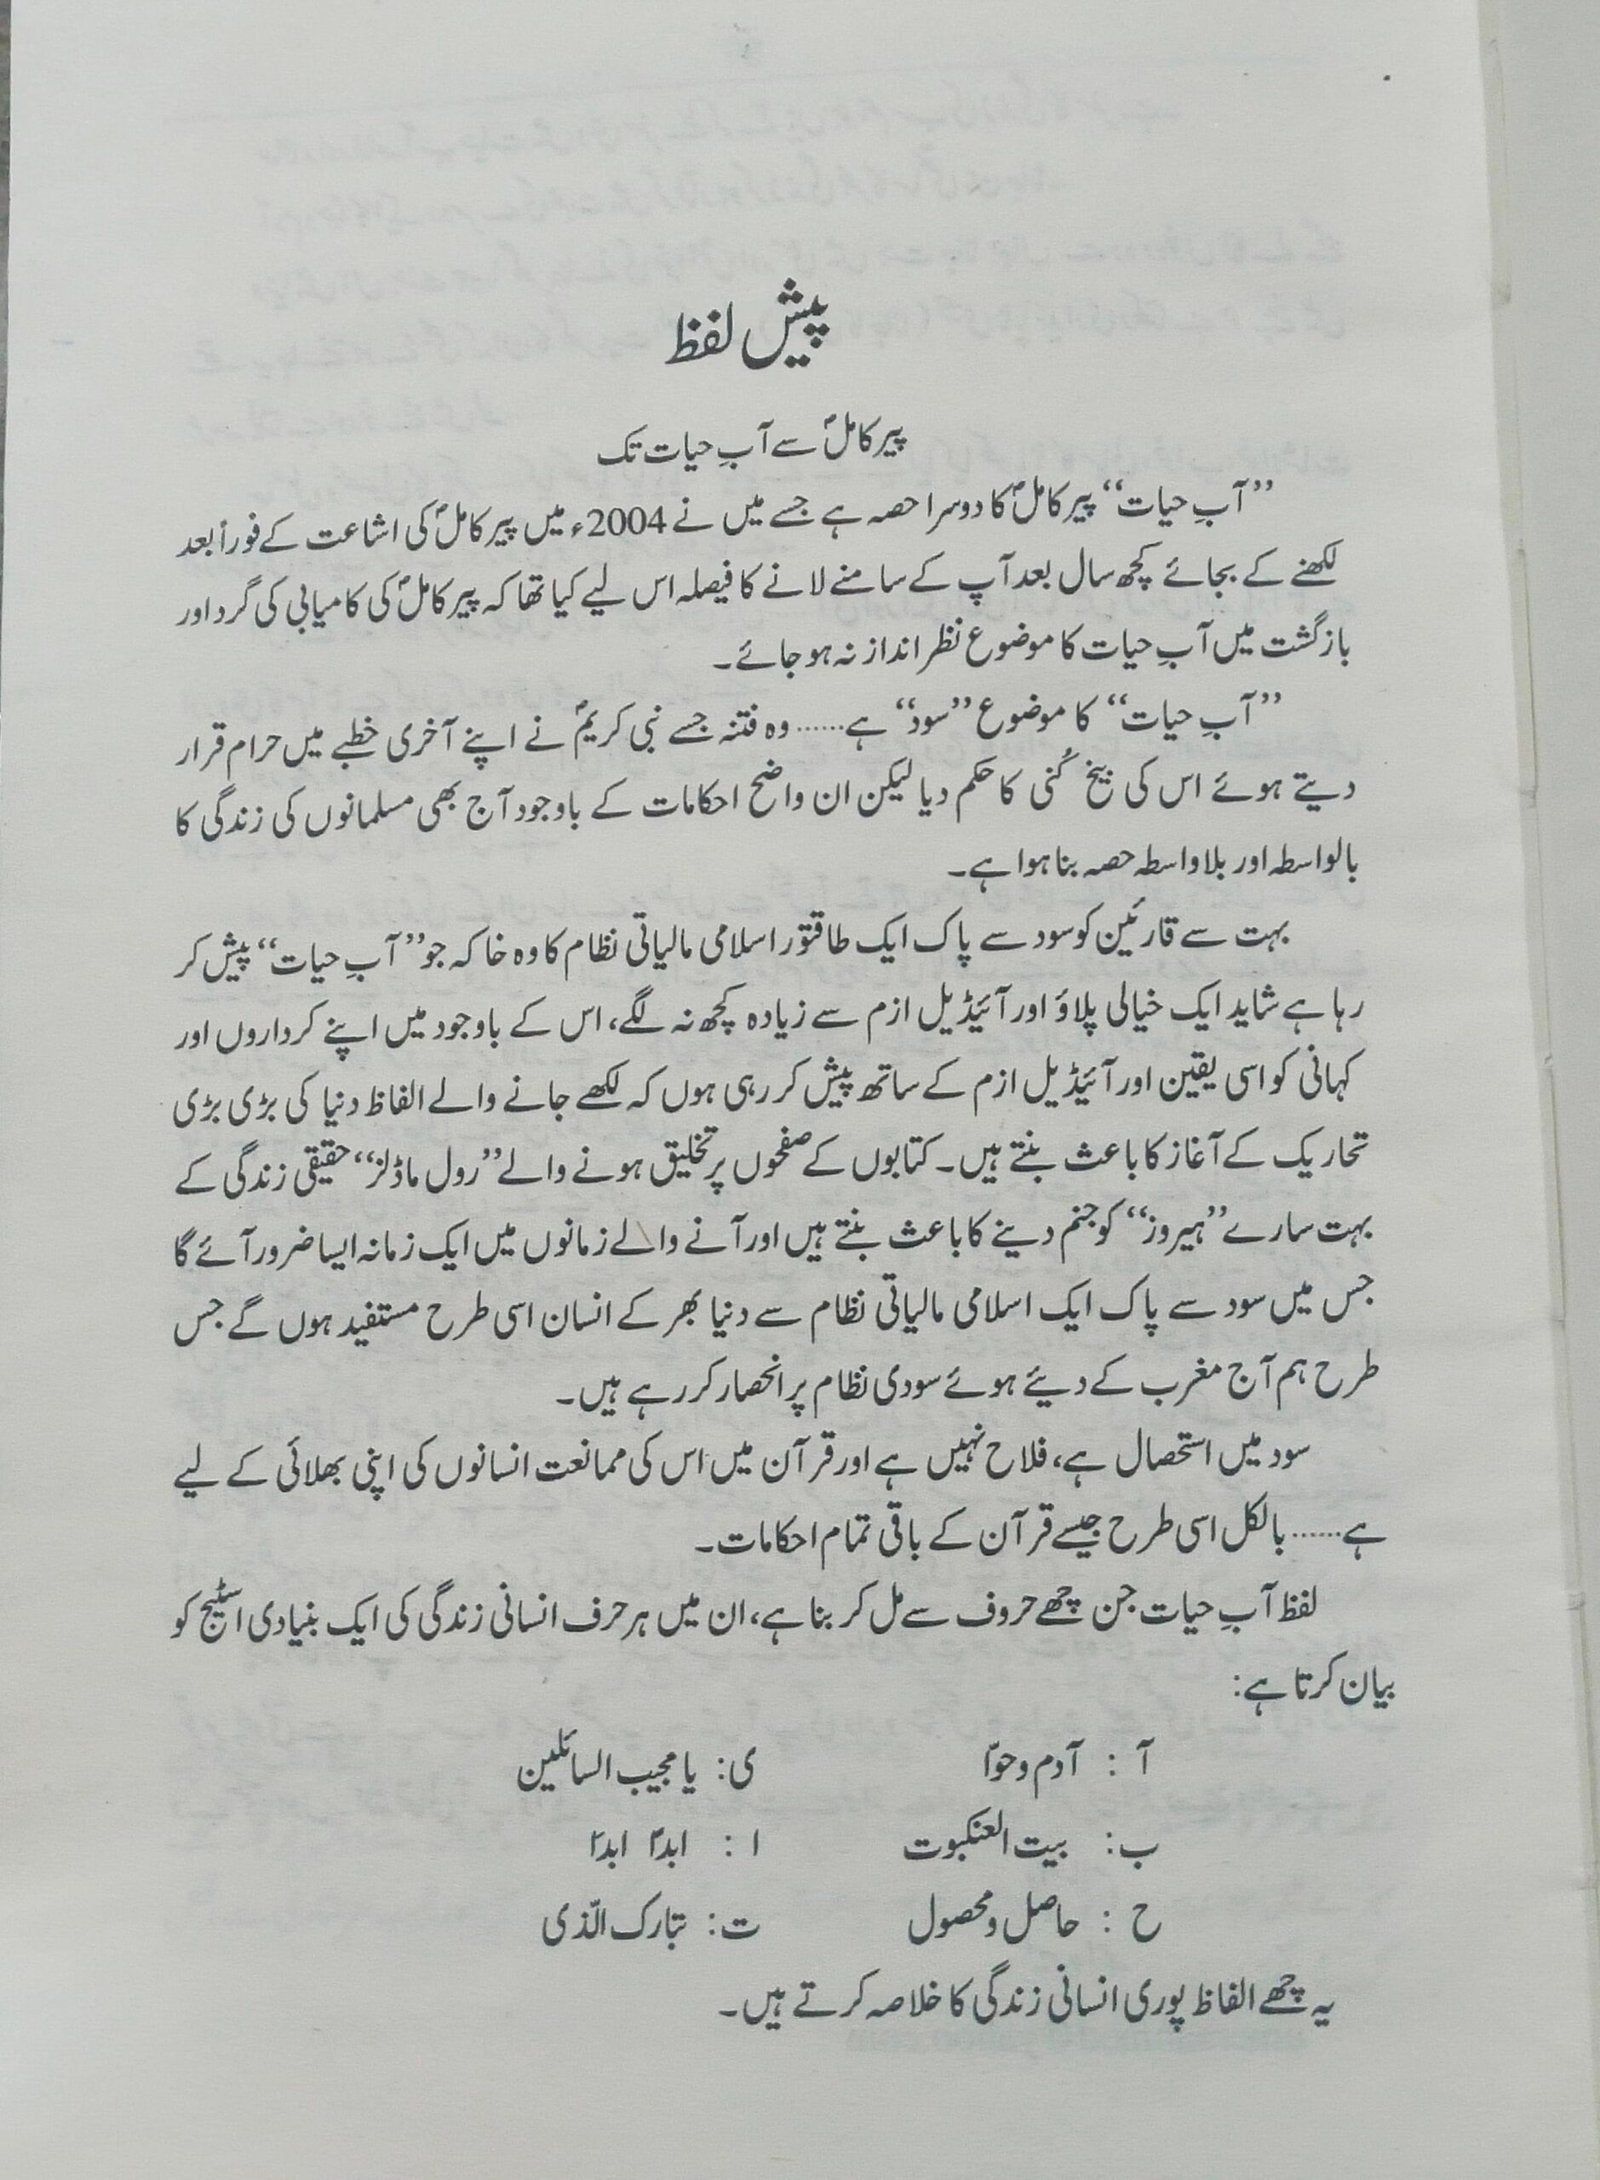 پیش لفظ
پیرِ کاملؐ سے آبِ حیات تک
”آبِ حیات“ پیر کاملؐ کا دوسرا حصہ ہے جسے میں نے 2004ء میں پیر کاملؐ کی اشاعت کے فوراً بعد
لکھنے کے بجائے کچھ سال بعد آپ کے سامنے لانے کا فیصلہ اس لیے کیا تھا کہ پیر کاملؐ کی کامیابی کی گرد اور
بازگشت میں آبِ حیات کا موضوع نظر انداز نہ ہو جائے۔
”آبِ حیات“ کا موضوع ”سود“ ہے...... وہ فتنہ جسے نبی کریمؐ نے اپنے آخری خطبے میں حرام قرار
دیتے ہوئے اس کی بیخ کُنی کا حکم دیا لیکن ان واضح احکامات کے باوجود آج بھی مسلمانوں کی زندگی کا
بالواسطہ اور بلاواسطہ حصہ بنا ہوا ہے۔
بہت سے قارئین کو سود سے پاک ایک طاقتور اسلامی مالیاتی نظام کا وہ خاکہ جو ”آبِ حیات“ پیش کر
رہا ہے شاید ایک خیالی پلاؤ اور آئیڈیل ازم سے زیادہ کچھ نہ لگے، اس کے باوجود میں اپنے کرداروں اور
کہانی کو اسی یقین اور آئیڈیل ازم کے ساتھ پیش کر رہی ہوں کہ لکھے جانے والے الفاظ دنیا کی بڑی بڑی
تحاریک کے آغاز کا باعث بنتے ہیں۔ کتابوں کے صفحوں پر تخلیق ہونے والے ”رول ماڈلز“ حقیقی زندگی کے
بہت سارے ”ہیروز“ کو جنم دینے کا باعث بنتے ہیں اور آنے والے زمانوں میں ایک زمانہ ایسا ضرور آئے گا
جس میں سود سے پاک ایک اسلامی مالیاتی نظام سے دنیا بھر کے انسان اسی طرح مستفید ہوں گے جس
طرح ہم آج مغرب کے دیئے ہوئے سودی نظام پر انحصار کر رہے ہیں۔
سود میں استحصال ہے، فلاح نہیں ہے اور قرآن میں اس کی ممانعت انسانوں کی اپنی بھلائی کے لیے
ہے...... بالکل اسی طرح جیسے قرآن کے باقی تمام احکامات۔
لفظ آبِ حیات جن چھے حروف سے مل کر بنا ہے، ان میں ہر حرف انسانی زندگی کی ایک بنیادی اسٹیج کو
بیان کرتا ہے:
آ : آدم و حوّا ی: یا مجیب السائلین
ب: بیت العنکبوت ا : ابداً ابداً
ح : حاصل و محصول ت: تبارک الّذی
یہ چھے الفاظ پوری انسانی زندگی کا خلاصہ کرتے ہیں۔